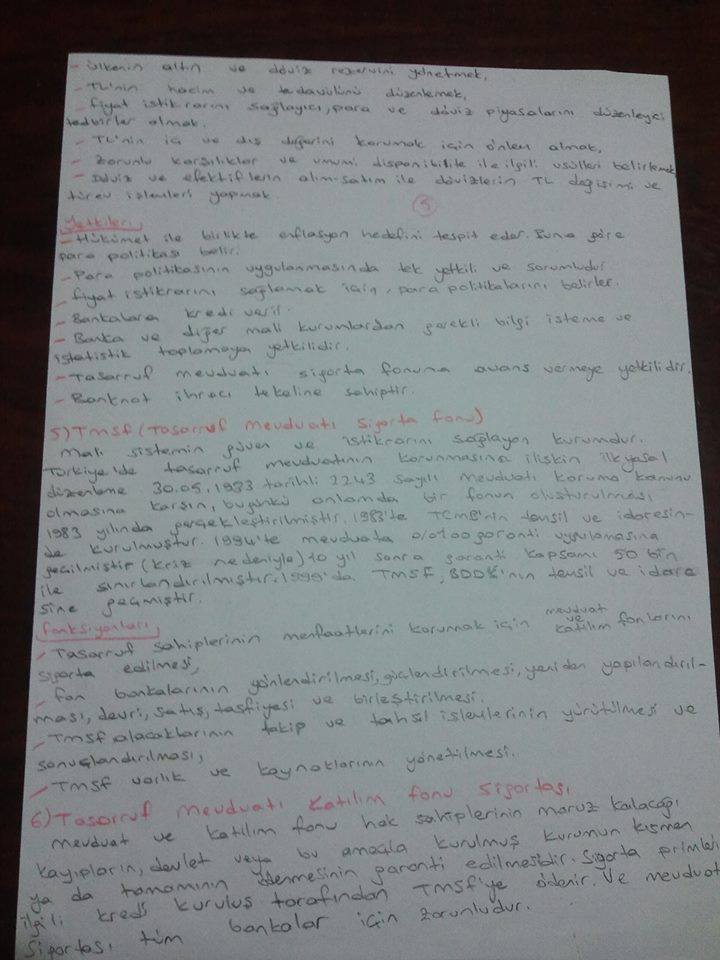 - ülkenin altın ve döviz rezervini yönetmek,
- TL'nin hacim ve tedavülünü düzenlemek,
- fiyat istikrarını sağlayıcı, para ve döviz piyasalarını düzenleyici
tedbirler almak.
- TL'nin iç ve dış değerini korumak için önlem almak,
- zorunlu karşılıklar ve umumi disponibilite ile ilgili usülleri belirlemek
- Döviz ve efektiflerin alım-satım ile dövizlerin TL değişimi ve
türev işlemleri yapmak.
5
Yetkileri
- Hükümet ile birlikte enflasyon hedefini tespit eder. Buna göre
para politikası belir.
- Para politikasının uygulanmasında tek yetkili ve sorumludur
- fiyat istikrarını sağlamak için, para politikalarını belirler.
- Bankalara kredi verir.
- Banka ve diğer mali kurumlardan gerekli bilgi isteme ve
istatistik toplamaya yetkilidir.
- Tasarruf mevduatı sigorta fonuna avans vermeye yetkilidir.
- Banknot ihracı tekeline sahiptir.
5) TMSF (Tasarruf Mevduatı Sigorta fonu)
Mali sistemin güven ve istikrarını sağlayan kurumdur.
Türkiye'de tasarruf mevduatının korunmasına ilişkin ilk yasal
düzenleme 30.05.1933 tarihli 2243 sayılı mevduatı koruma kanunu
olmasına karşın, bugünkü anlamda bir fonun oluşturulması
1983 yılında gerçekleştirilmiştir. 1983'te TCMB'nin temsil ve idaresin-
de kurulmuştur. 1994'te mevduata %100 garanti uygulamasına
geçilmiştir (kriz nedeniyle) 10 yıl sonra garanti kapsamı 50 bin
ile sınırlandırılmıştır. 1999'da TMSF, BDDK'nın temsil ve idare
sine geçmiştir.
fonksiyonları
- Tasarruf sahiplerinin menfaatlerini korumak için mevduat
ve
katılım fonlarını
sigorta edilmesi,
- fon bankalarının yönlendirilmesi, güçlendirilmesi, yeniden yapılandırıl-
ması, devri, satış, tasfiyesi ve birleştirilmesi.
- TMSF alacaklarının takip ve tahsil işlemlerinin yürütülmesi ve
sonuçlandırılması,
- TMSF varlık ve kaynaklarının yönetilmesi.
6) Tasarruf Mevduatı Katılım fonu Sigortası
mevduat ve katılım fonu hak sahiplerinin maruz kalacağı
kayıpların, devlet veya bu amaçla kurulmuş kurumun kısmen
ya da tamamının ödenmesinin garanti edilmesidir. Sigorta primleri
ilgili kredi kuruluş tarafından TMSF'ye ödenir. Ve mevduat
sigortası tüm bankalar için zorunludur.